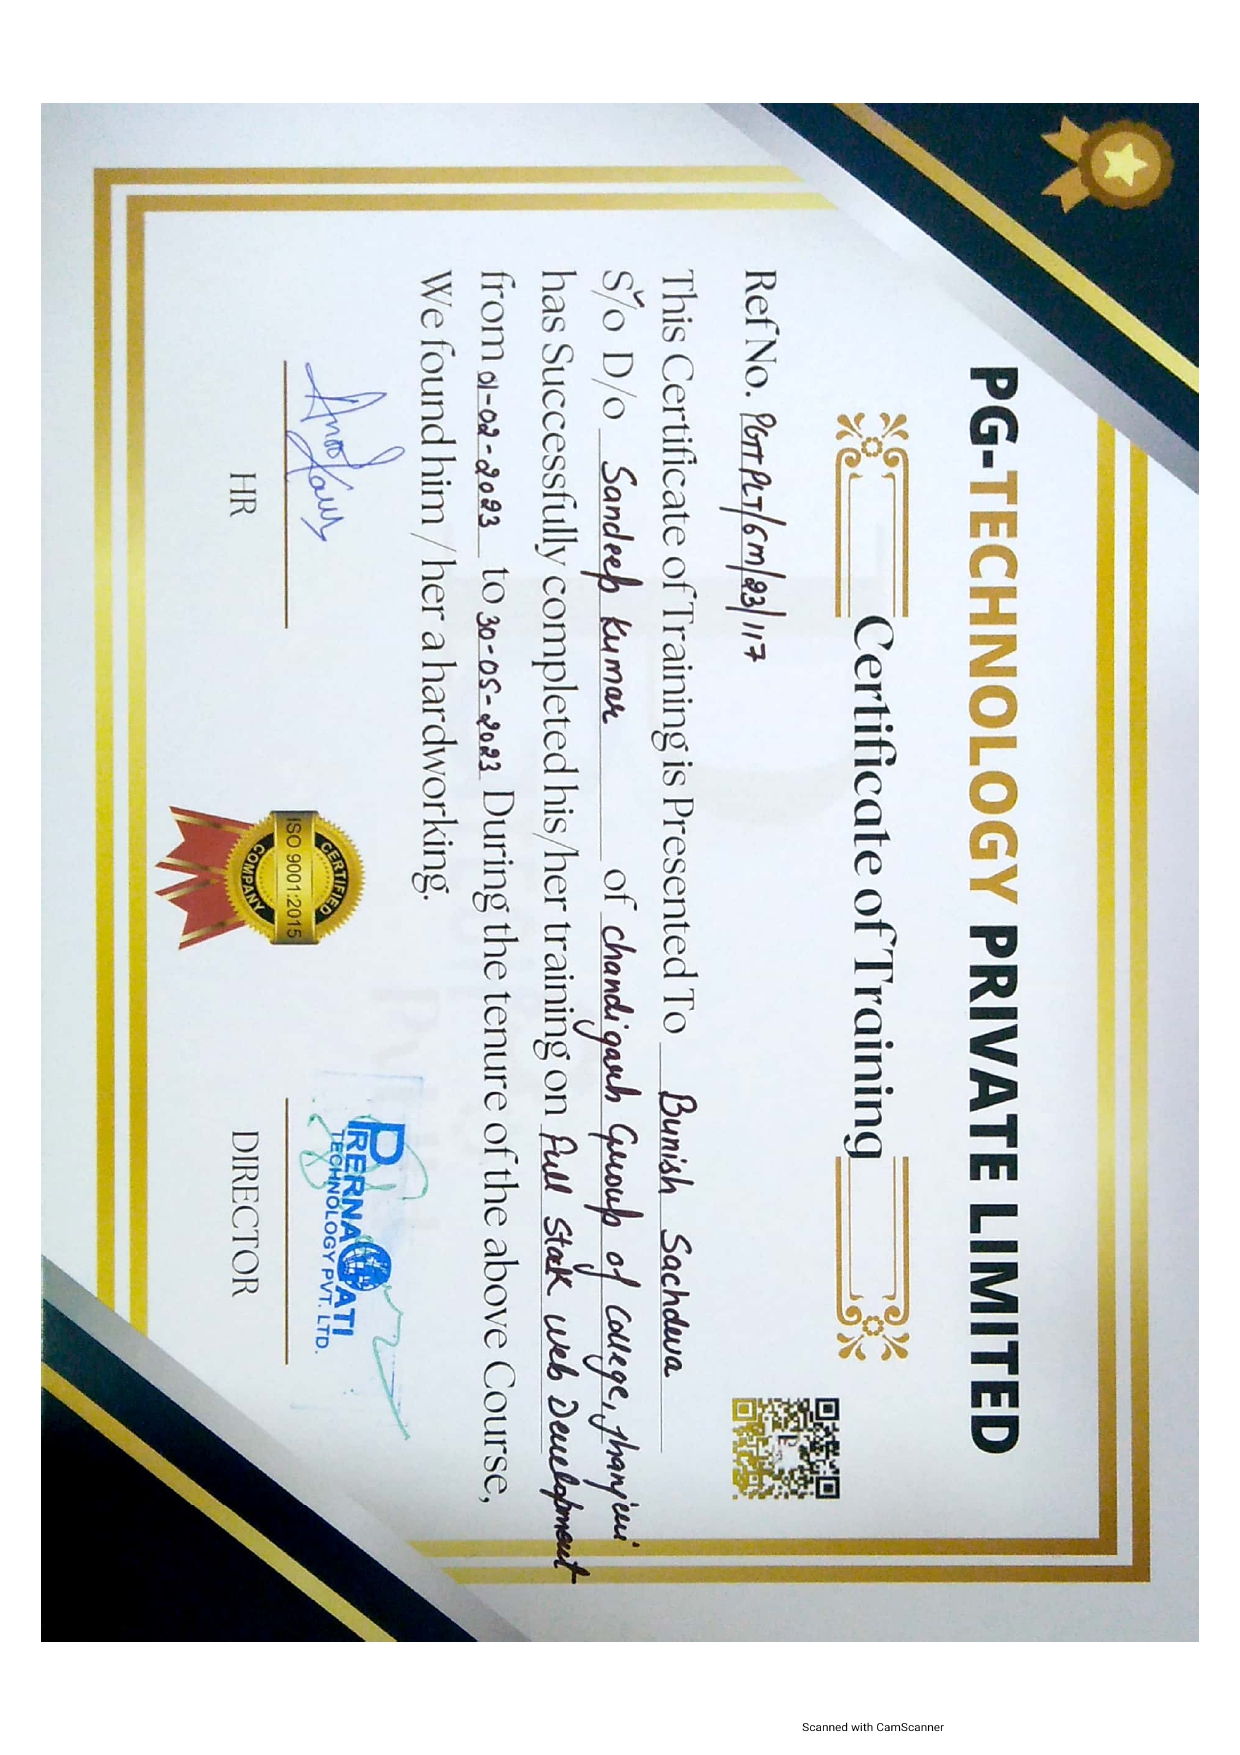 PG-TECHNOLOGY PRIVATE LIMITED
Certificate of Training
Ref No. PGTTPLT/6m/23/117
This Certificate of Training is Presented To Bunish Sachdeva
S/o D/o Sandeep Kumar of chandigarh Group of College, Jhanjeri
has Successfully completed his/her training on Full Stack web Development
from 01-02-2023 to 30-05-2023 During the tenure of the above Course,
We found him / her a hardworking.
CERTIFIED
ISO 9001:2015
COMPANY
PRERNA GATI
TECHNOLOGY PVT. LTD.
HR
DIRECTOR
Scanned with CamScanner